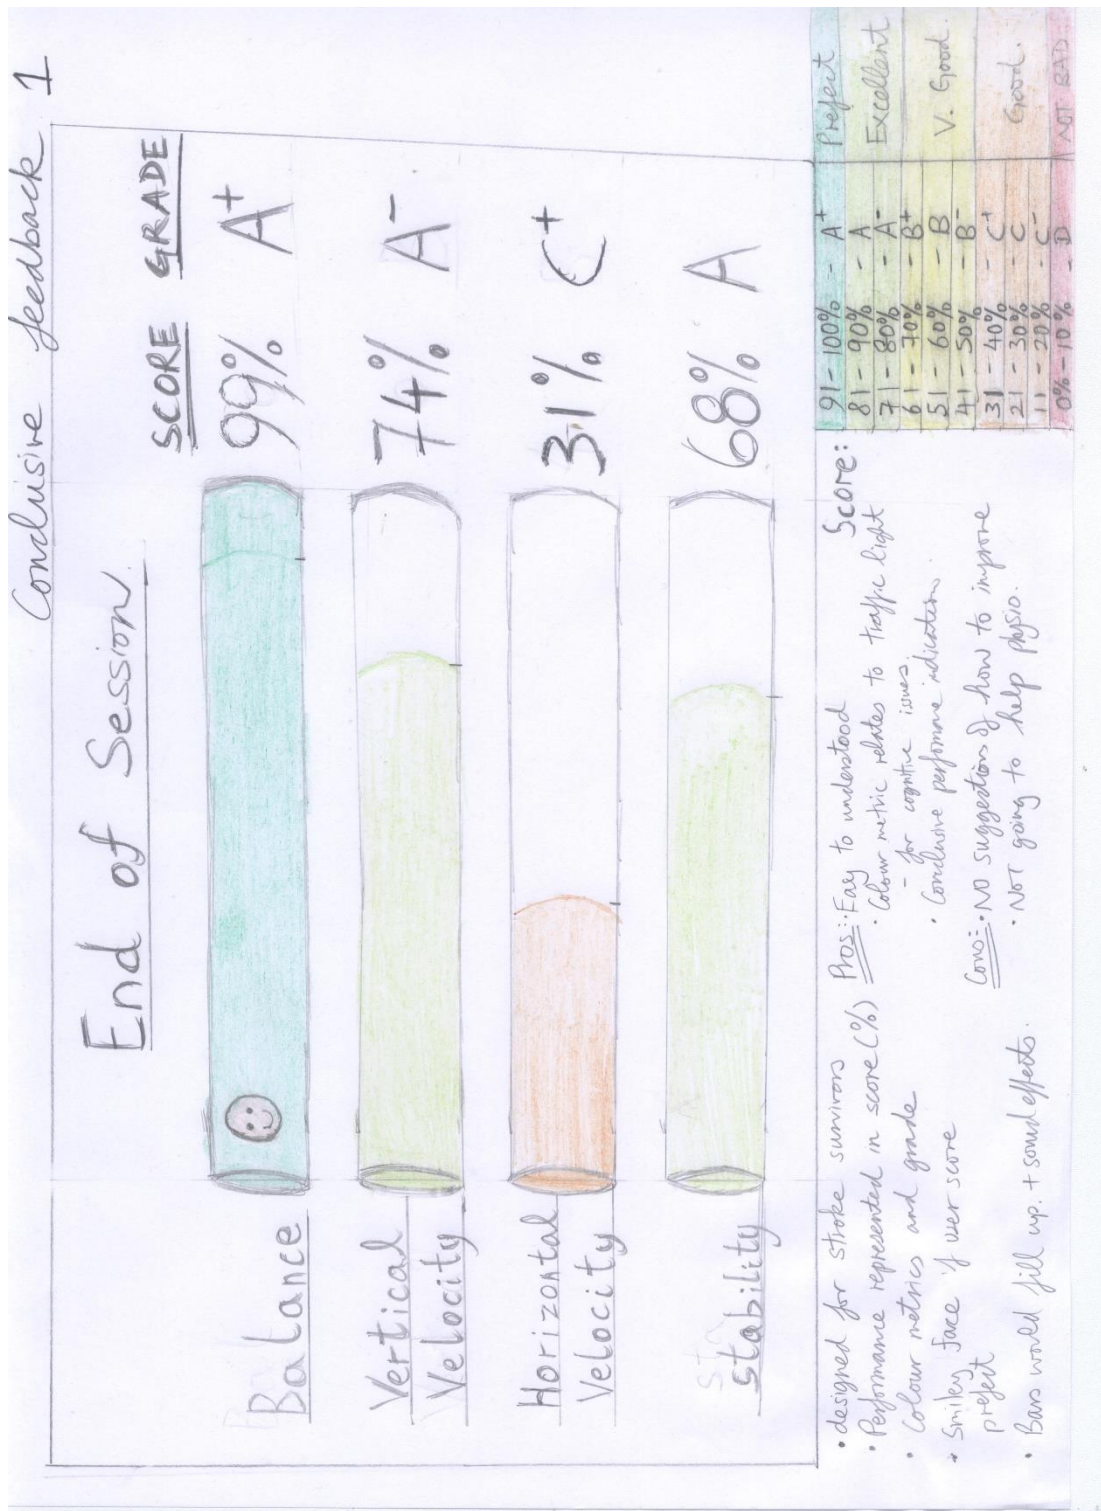 Conclusive feedback 1
End of Session
SCORE GRADE
Balance 99% A+
Vertical
Velocity 74% A-
Horizontal
Velocity 31% C+
Stability 68% A
• designed for stroke survivors
• Performance represented in score (%)
• Colour metrics and grade
• Smiley face if user score
prefect
• Bars would fill up. + sound effects.
Pros: • Easy to understood
• Colour metric relates to traffic light
- for cognitive issues.
• Conclusive performance indication.
Cons: • NO suggestion of how to improve
• NOT going to help physio.
Score:
91 - 100% - A+ Prefect
81 - 90% - A Excellent
71 - 80% - A-
61 - 70% - B+
51 - 60% - B V. Good.
41 - 50% - B-
31 - 40% - C+
21 - 30% - C Good.
11 - 20% - C-
0% - 10% - D NOT BAD